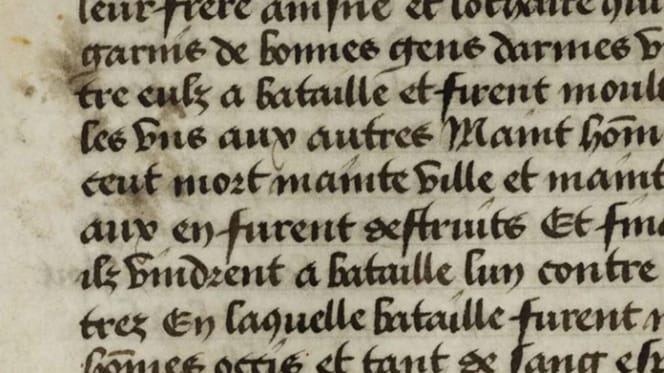 leur frere aisne et lothaire qui
garnis de bonnes gens darmes v
tre eulz a bataille et firent moult
les vns aux autres Maint hom̄
ceut mort mainte ville et maint
aux en furent destruits Et fina
ilz vindrent a bataille lun contre
trez En laquelle bataille furent
hom̄es occis et tant de sang esp